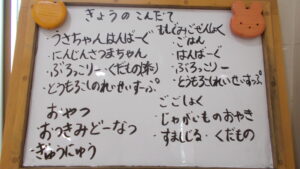 きょうのこんだて
うさちゃんはんばーぐ
・にんじんさつまちゃん
・ぶろっこりー・くだもの(梨)
・とうもろこしのれいせいすーぷ
おやつ
・おつきみどーなつ
・ぎゅうにゅう
もぐもぐみごせんしょく
・ごはん
・はんばーぐ
・ぶろっこりー
・とうもろこしれいせいすーぷ
ごごしょく
・じゃがいものおやき
・すましじる・くだもの